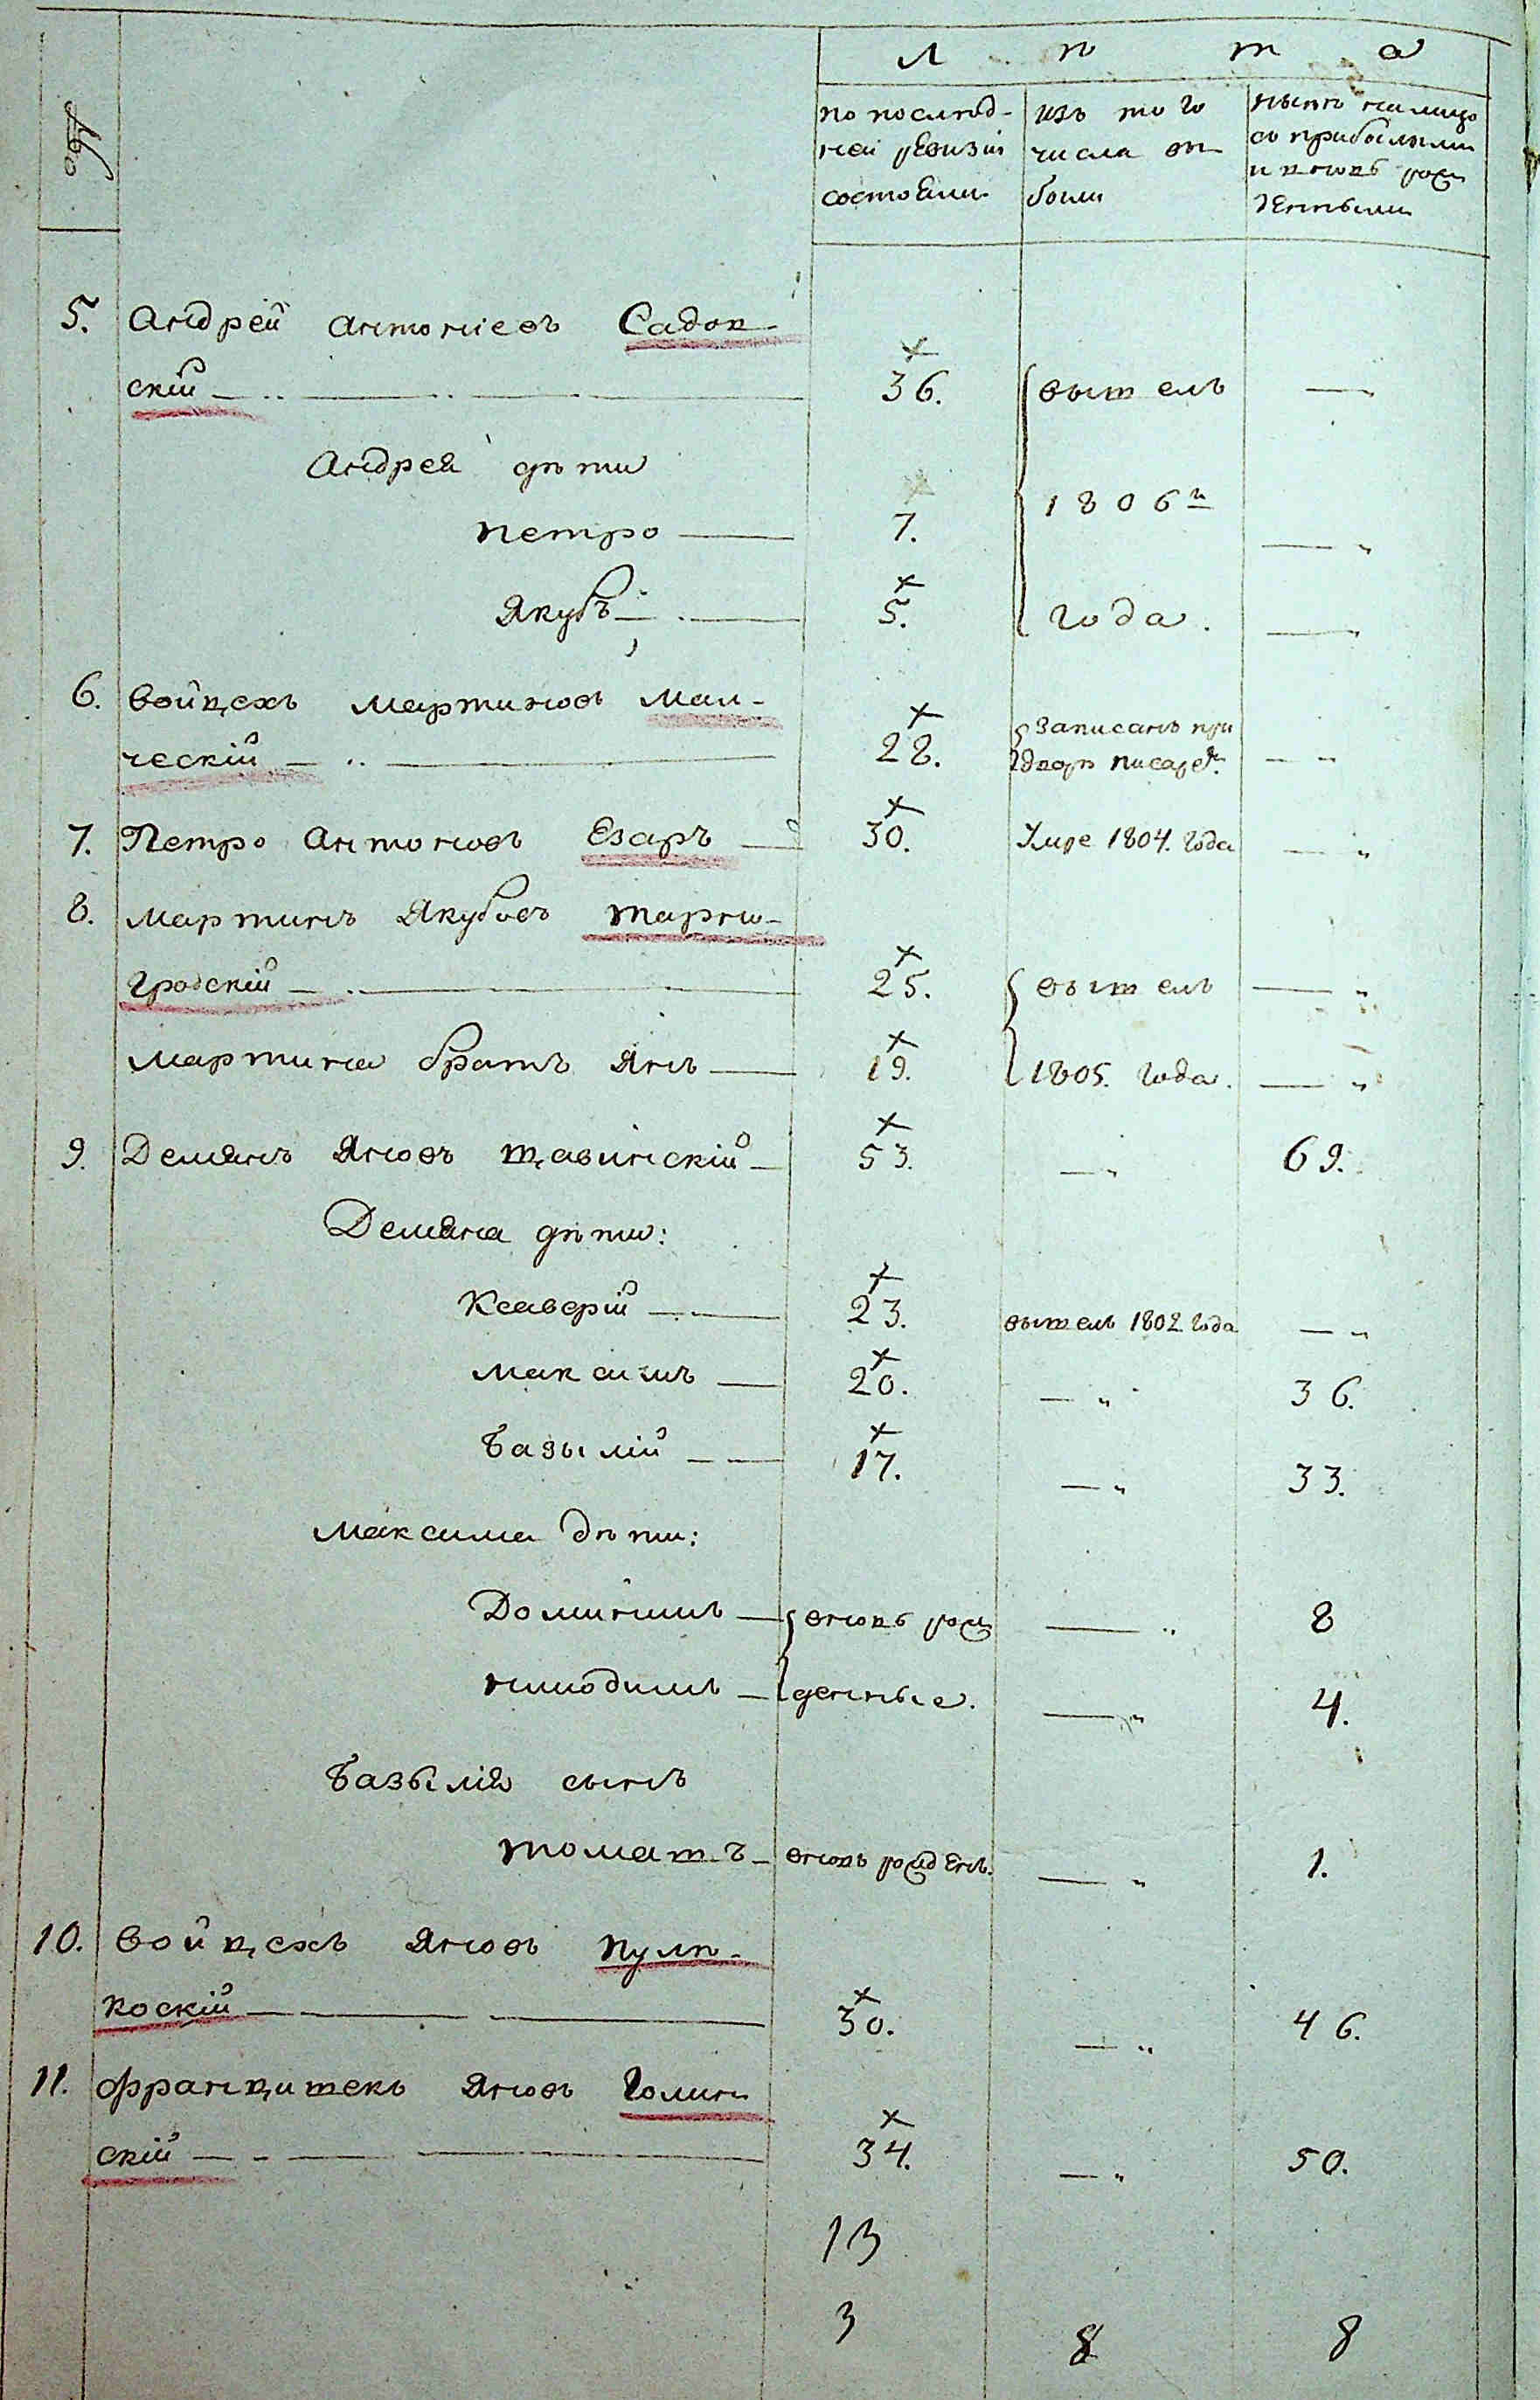 №
Л ѣ т а
по послѣд-
ней ревизіи
состояли
изъ того
числа вы
были
нынѣ налицо
съ прибылыми
и вновь рож
денными
5. Андрей Антоніевъ Садов-
скій 36. вышелъ
Андрея дѣти
Петро 7. 1806го
Якубъ 5. года.
6. Войцехъ Мартиновъ Мали-
ческій 28. записанъ при
дворѣ
7. Петро Антоновъ Езаръ 30. Умре 1804. года
8. Мартинъ Якубовъ Тарно-
гродскій 25. вышелъ
Мартина братъ Янъ 19. 1805. года.
9. Демянъ Яновъ Щавинскій 53. 69.
Демяна дѣти:
Ксаверій 23. вышелъ 1802 года
Максимъ 20. 36.
Базылій 17. 33.
Максима дѣти:
Доминикъ вновь рож 8
Никодимъ денные. 4.
Базылія сынъ
Томашъ вновь рожденъ. 1.
10. Войцехъ Яновъ Пулп-
коскій 30. 46.
11. Францишекъ Яновъ Голин
скій 34. 50.
13
3 8 8